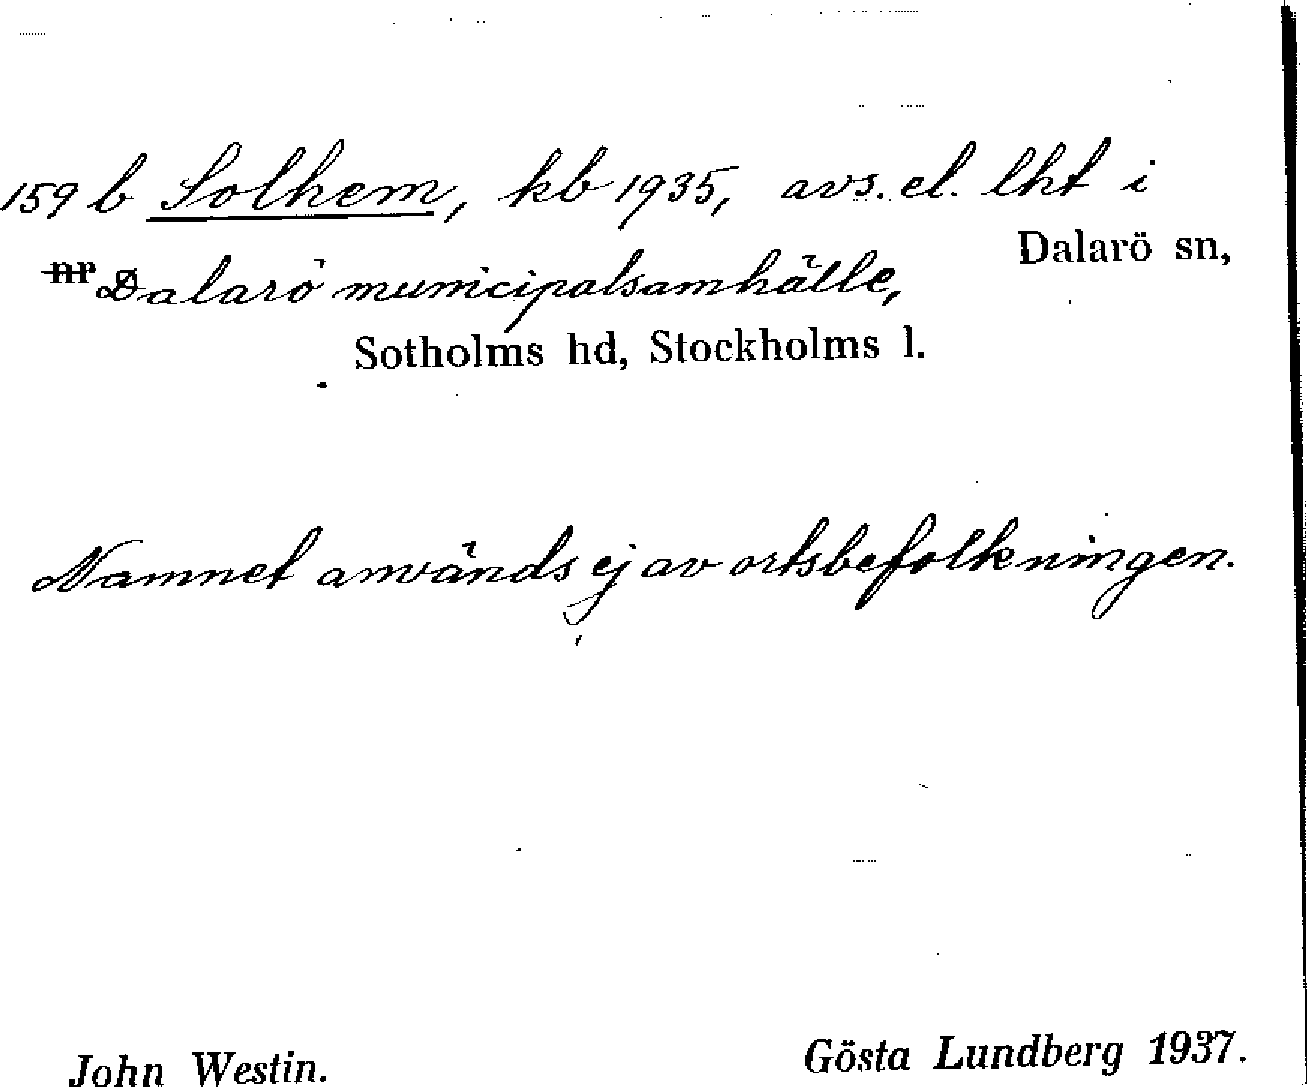 159 b Solhem, kb 1935, avs. el. lht i
Dalarö sn,
nr Dalarö municipalsamhälle,
Sotholms hd, Stockholms l.
Namnet användes ej av ortsbefolkningen.
John Westin.
Gösta Lundberg 1937.